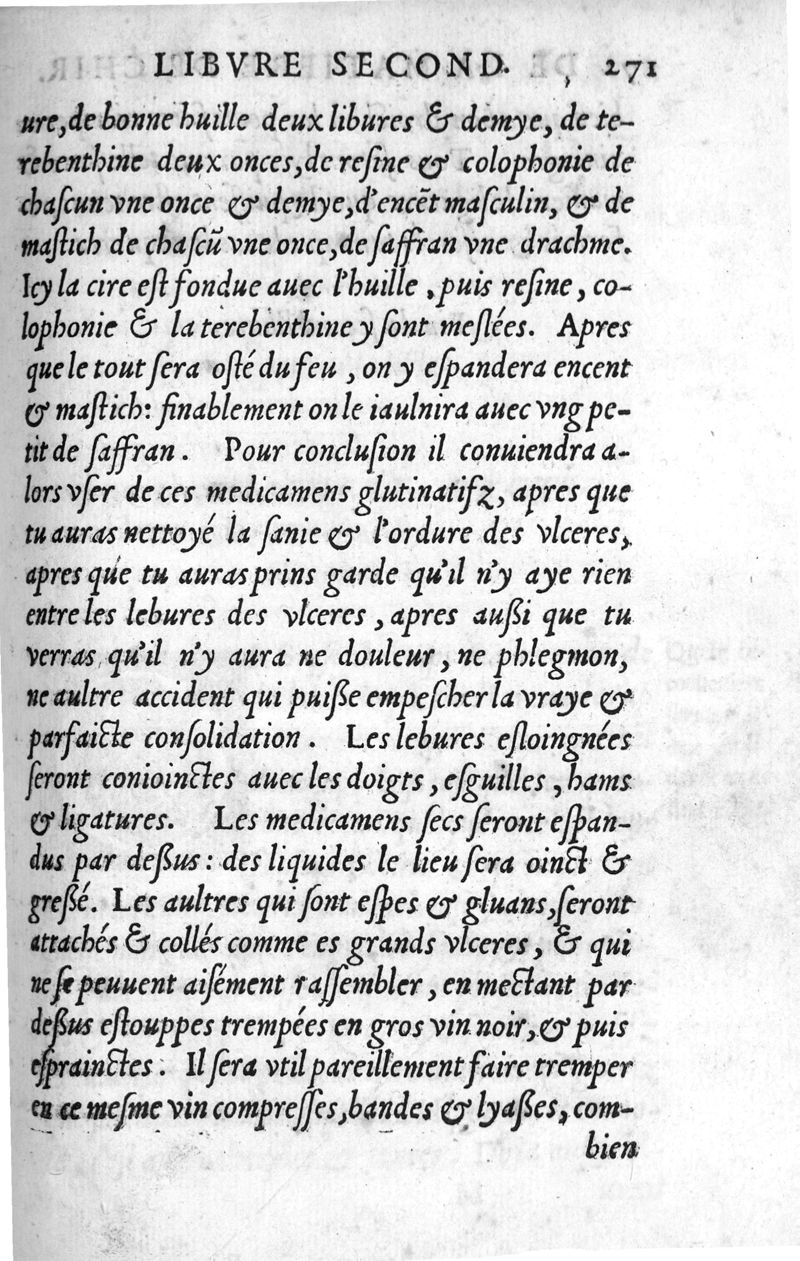 LIBVRE SECOND. 271
ure, de bonne huille deux libures & demye, de te-
rebenthine deux onces, de resine & colophonie de
chascun vne once & demye, d'encẽt masculin, & de
mastich de chascũ vne once, de saffran vne drachme.
Icy la cire est fondue auec l'huille, puis resine, co-
lophonie & la terebenthine y sont meslées. Apres
que le tout sera osté du feu, on y espandera encent
& mastich: finablement on le iaulnira auec vng pe-
tit de saffran. Pour conclusion il conuiendra a-
lors vser de ces medicamens glutinatifz, apres que
tu auras nettoyé la sanie & l'ordure des vlceres,
apres que tu auras prins garde qu'il n'y aye rien
entre les lebures des vlceres, apres aussi que tu
verras qu'il n'y aura ne douleur, ne phlegmon,
ne aultre accident qui puisse empescher la vraye &
parfaicte consolidation. Les lebures esloingnées
seront conioinctes auec les doigts, esguilles, hams
& ligatures. Les medicamens secs seront espan-
dus par dessus: des liquides le lieu sera oinct &
gressé. Les aultres qui sont espes & gluans, seront
attachés & collés comme es grands vlceres, & qui
ne se peuuent aisément rassembler, en mectant par
dessus estouppes trempées en gros vin noir, & puis
esprainctes. Il sera vtil pareillement faire tremper
en ce mesme vin compresses, bandes & lyasses, com-
bien